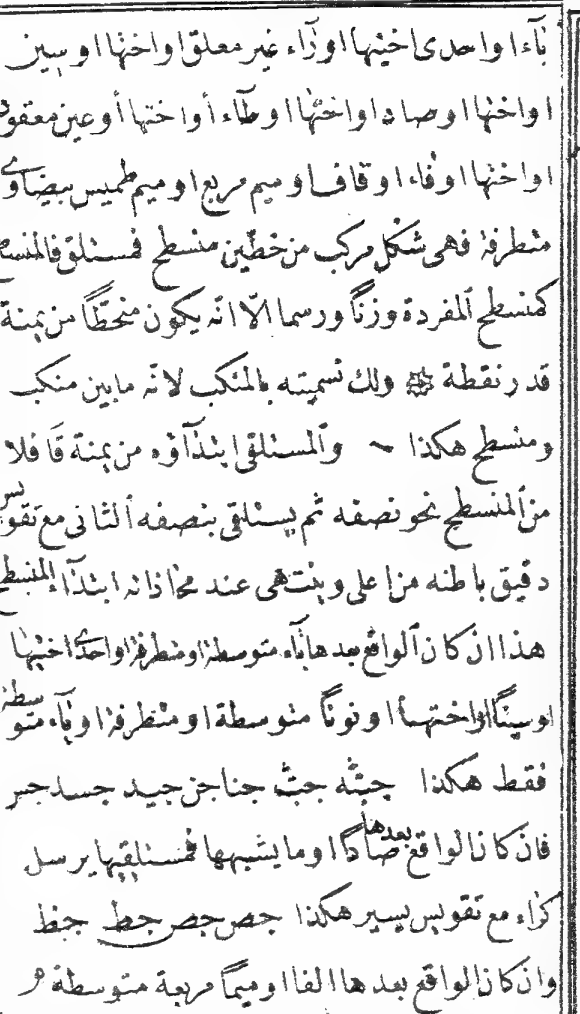 بآء او احدى اختيها او زآء غير معلق او اختها او سين
او اختها او صاد او اختها او طآء أو اختها أو عين معقود
او اختها او فاء او قاف او ميم مربع او ميم طميس بيضاوى
متطرفة فهى شكل مركب من خطين منسطح فمستلق فالمنسطح
كمنسطح المفردة وزنًا ورسما الّا انّه يكون منحطًّا من يمنة
قدر نقطة ولك تسميته بالمنكب لانّه مابين منكب
ومنسطح هكذا والمستلقى ابتدآؤه من يمنة قافلا
من المنسطح نحو نصفه ثم يستلقى بنصفه الثانى مع تقويس
دقيق باطنه من اعلى وينتهى عند محاذاته ابتدآء المنسطح
هذا ان كان الواقع بعدها بآء متوسطة او متطرفة او احدى اختيها
او سينًا او اختهـا او نونًا متوسطة او متطرفة او يآء متوسطة
فقط هكذا جبثه جبث جنا جن جيد جسد جبر
فان كان الواقع بعدها صادًا او ما يشبهها فمستلقيها يرسل
كراء مع تقويس يسير هكذا جص جص جط جظ
وان كان الواقع بعدها الفا او ميمًا مربعة متوسطة